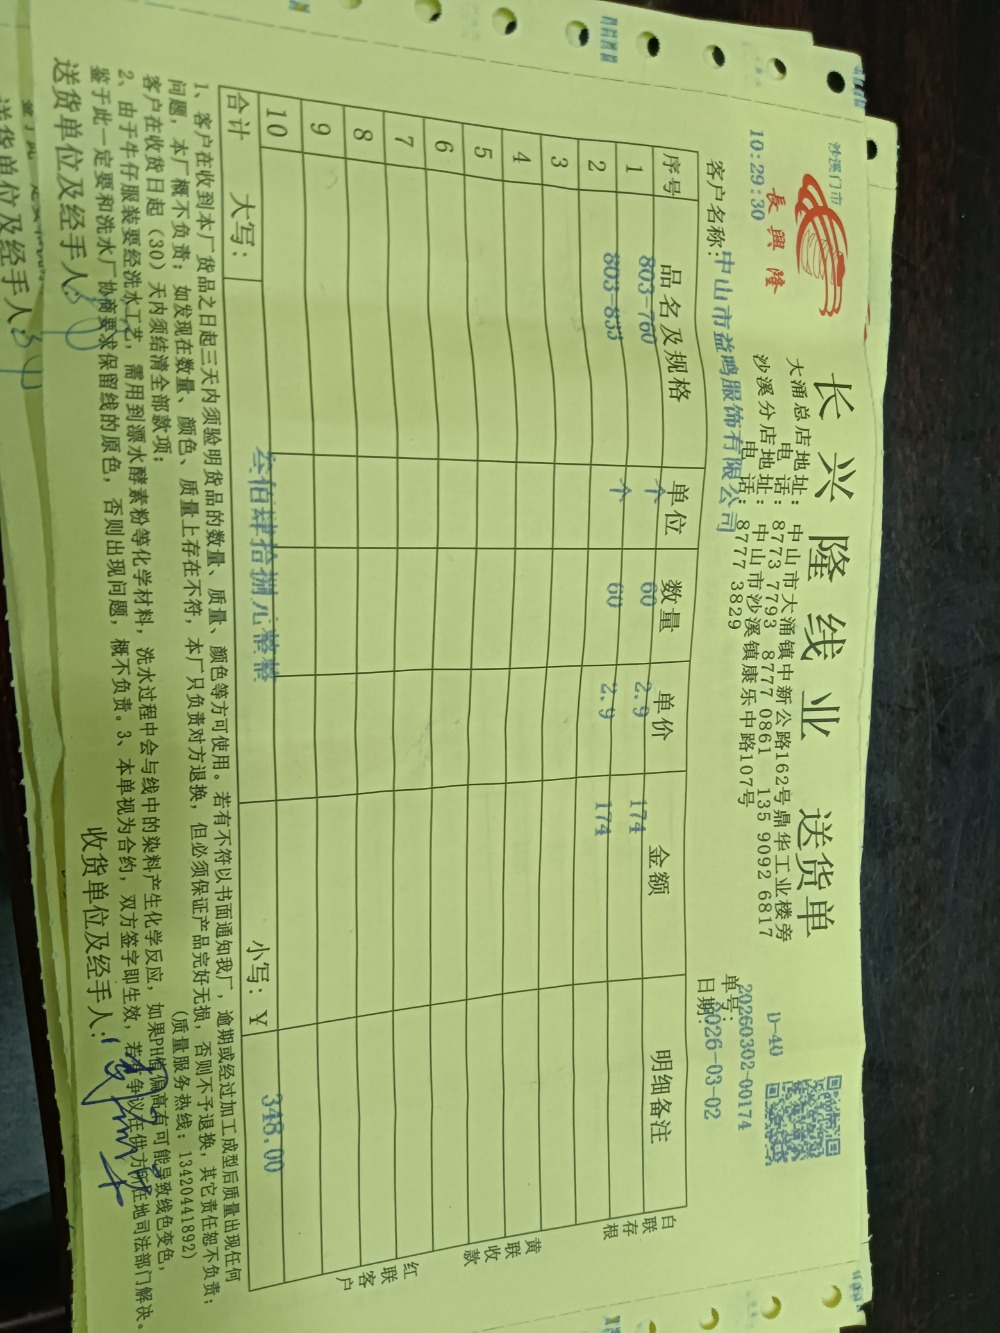 沙溪门市
長興隆
10:29:30
长兴隆线业 送货单
大涌总店地址: 中山市大涌镇中新公路162号鼎华工业楼旁
电 话: 8773 7793 8777 0861 135 9092 6817
沙溪分店地址: 中山市沙溪镇康乐中路107号
电 话: 8777 3829
D-40
单号: 20260302-00174
日期: 2026-03-02
客户名称: 中山市益鸣服饰有限公司
序号 品名及规格 单位 数量 单价 金额 明细备注
1 803-760 个 60 2.9 174
2 803-833 个 60 2.9 174
3
4
5
6
7
8
9
10
合计 大写: 叁佰肆拾捌元整整 小写: ¥ 348.00
白联存根
黄联收款
红联客户
1、客户在收到本厂货品之日起三天内须验明货品的数量、质量、颜色等方可使用。若有不符以书面通知我厂，逾期或经过加工成型后质量出现任何
问题，本厂概不负责；如发现在数量、颜色、质量上存在不符，本厂只负责对方退换，但必须保证产品完好无损，否则不予退换，其它责任恕不负责；
客户在收货日起（30）天内须结清全部款项； (质量服务热线: 13420441892)
2、由于牛仔服装要经洗水工艺，需用到漂水酵素粉等化学材料，洗水过程中会与线中的染料产生化学反应，如果PH值偏高有可能导致线色变色，
鉴于此一定要和洗水厂协商要求保留线的原色，否则出现问题，概不负责。3、本单视为合约，双方签字即生效，若有争议在供方所在地司法部门解决。
送货单位及经手人: 收货单位及经手人:
送货单位及经手人: